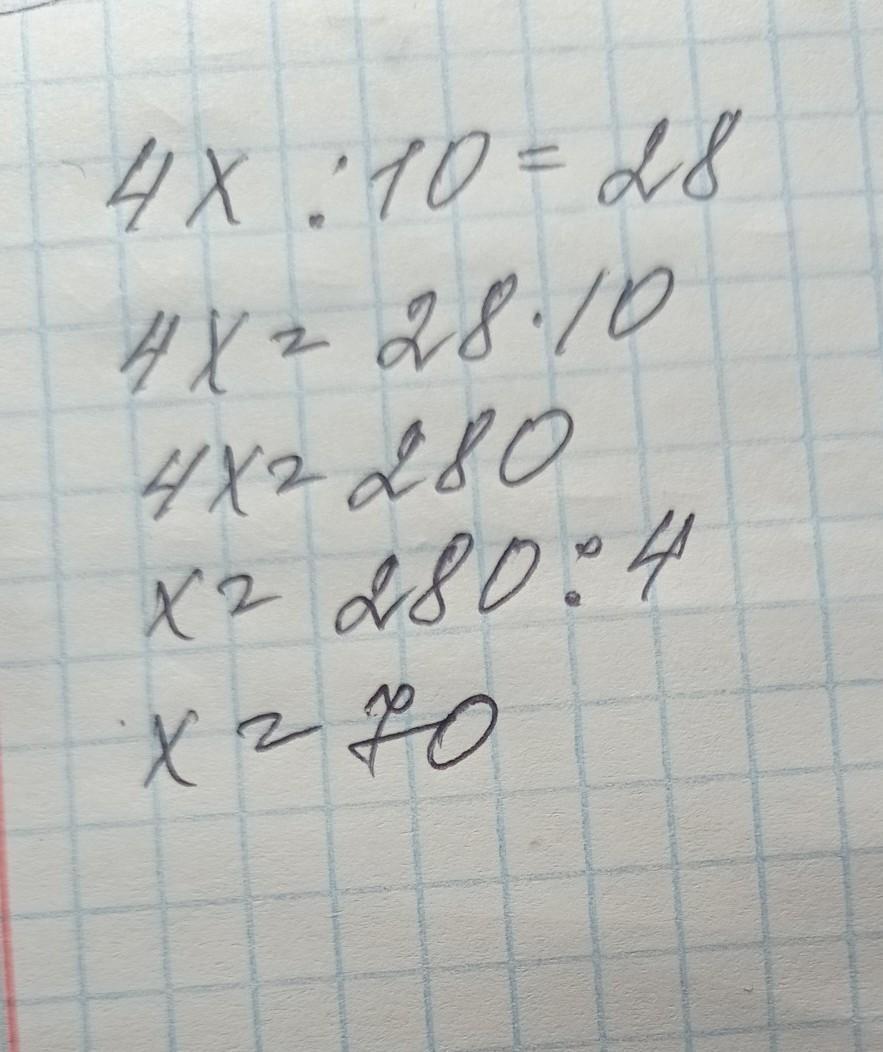 4x : 10 = 28
4x = 28 · 10
4x = 280
x = 280 : 4
x = 70